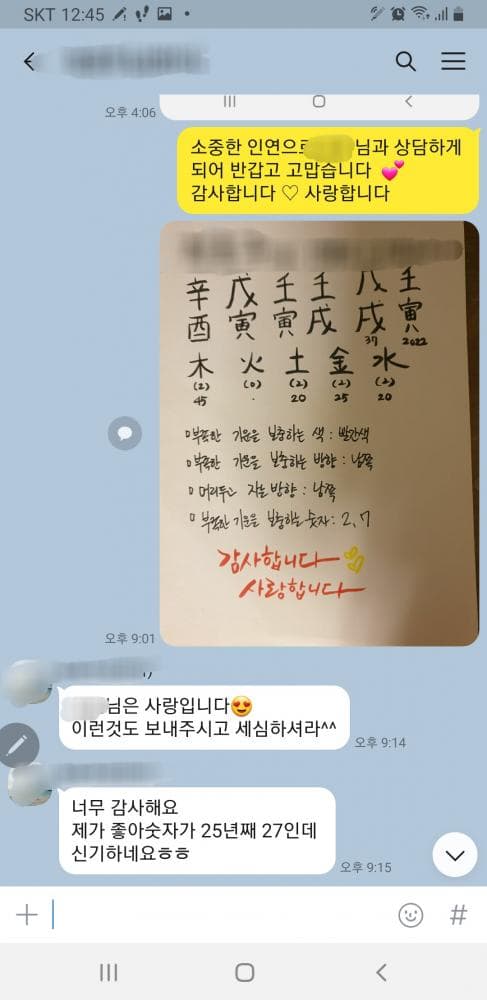 SKT 12:45
오후 4:06
소중한 인연으로 님과 상담하게
되어 반갑고 고맙습니다 💕
감사합니다 ♡ 사랑합니다
辛 戊 壬 壬 戊 壬
酉 寅 寅 戌 戌 寅
37 2022
木 火 土 金 水
(2) (0) (2) (2) (2)
45 · 20 25 20
부족한 기운을 보충하는 색 : 빨간색
부족한 기운을 보충하는 방향 : 남쪽
머리두고 자는 방향 : 남쪽
부족한 기운을 보충하는 숫자 : 2, 7
감사합니다
사랑합니다
오후 9:01
님은 사랑입니다😍
이런것도 보내주시고 세심하셔라^^
오후 9:14
너무 감사해요
제가 좋아숫자가 25년째 27인데
신기하네요ㅎㅎ
오후 9:15
#